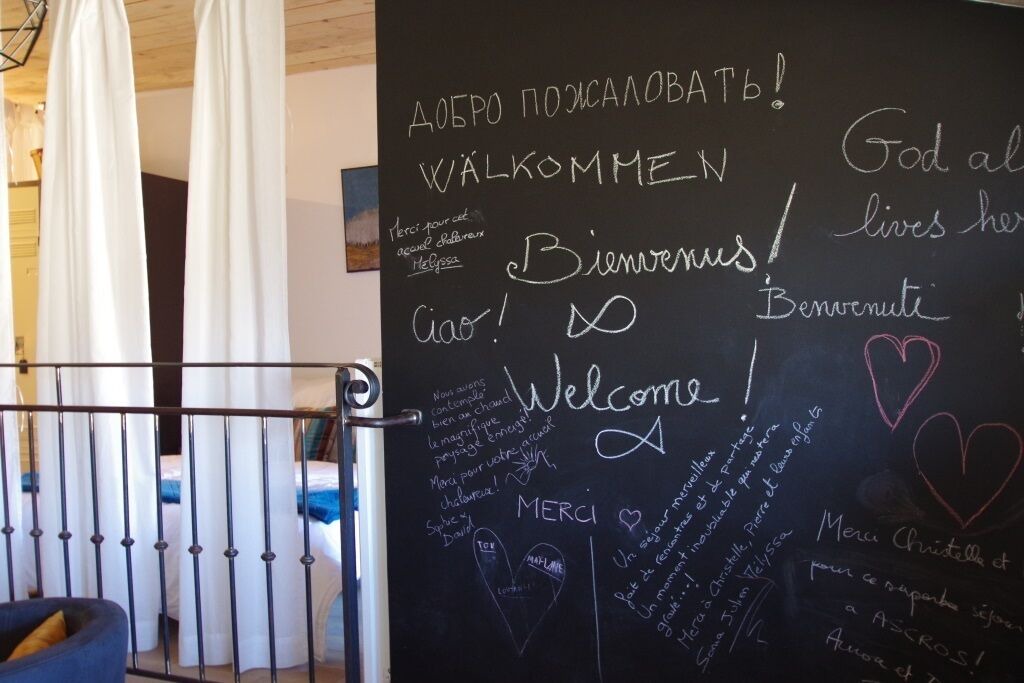 ДОБРО ПОЖАЛОВАТЬ!
WÄLKOMMEN
God al
lives her
Merci pour cet
accueil chaleureux
Mélyssa
Bienvenus!
Ciao!
Benvenuti
Welcome!
Nous avons
contemplé
bien au chaud
le magnifique
paysage enneigé!!
Merci pour votre accueil
chaleureux!
Sophie x
David
MERCI
Un séjour merveilleux
fait de rencontres et de partage
Un moment inoubliable qui restera
gravé...!
Merci à Christelle, Pierre et leurs enfants
Sonia Julien Mélyssa
TOM
MAY-LANE
Merci Christelle et
pour ce superbe séjour
a ASCROS!
Aurora et